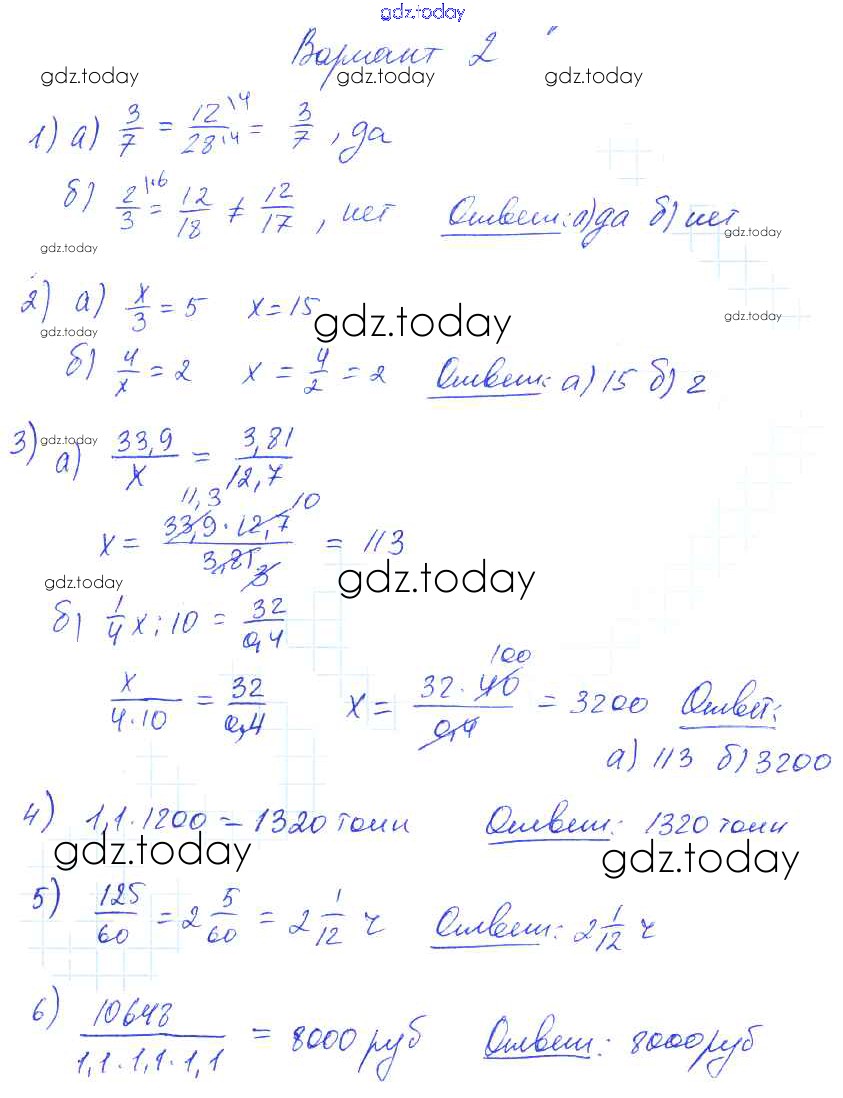 gdz.today
Вариант 2
gdz.today gdz.today gdz.today
1) а) 3/7 = 12\4/28\4 = 3/7, да
б) 2/3 \·6 = 12/18 ≠ 12/17, нет Ответ: а) да б) нет
gdz.today gdz.today
2) а) x/3 = 5 x = 15
gdz.today gdz.today gdz.today
б) 4/x = 2 x = 4/2 = 2 Ответ: а) 15 б) 2
3) gdz.today а) 33,9/x = 3,81/12,7
11,3 10
x = 33,9 · 12,7/3,81 3 = 113
gdz.today gdz.today
б) 1/4 x : 10 = 32/0,4
100
x/4·10 = 32/0,4 x = 32 · 40/0,4 = 3200 Ответ:
а) 113 б) 3200
4) 1,1 · 1200 = 1320 тонн Ответ: 1320 тонн
gdz.today gdz.today
5) 125/60 = 2 5/60 = 2 1/12 ч Ответ: 2 1/12 ч
6) 10648/1,1 · 1,1 · 1,1 = 8000 руб Ответ: 8000 руб